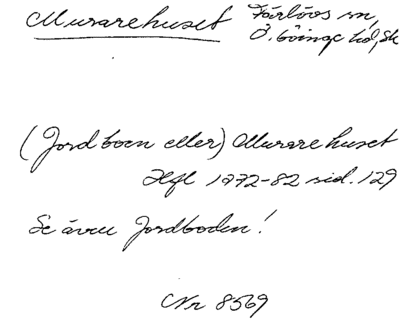 Murarehuset Färlövs sn,
Ö. Göinge hd, Sk
(Jordboen eller) Murarehuset
Hfl 1772-82 sid. 129
Se även Jordboden!
Nr 8569